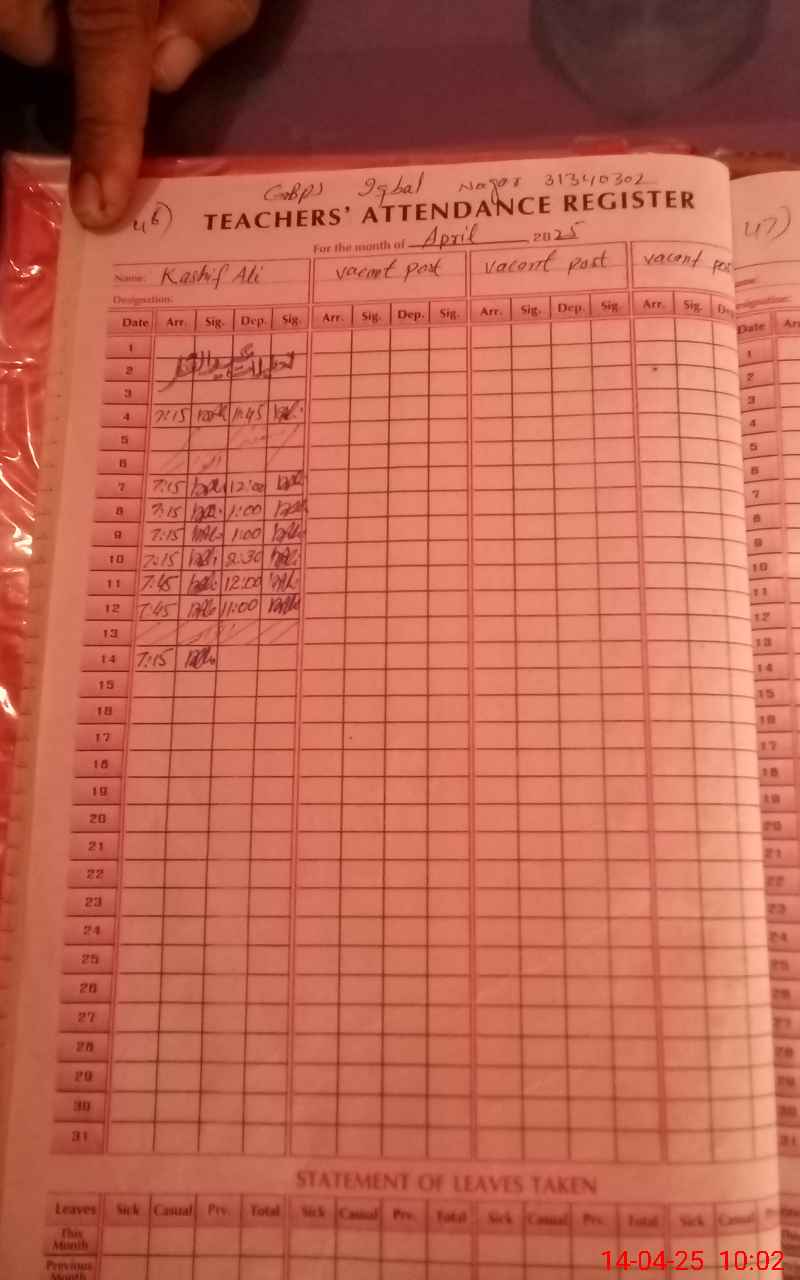 GBPS Iqbal Nagar 31340302
46) TEACHERS' ATTENDANCE REGISTER 47)
For the month of April 2025
Name: Kashif Ali vacant post vacant post vacant pos
Designation:
Date Arr. Sig. Dep. Sig. Arr. Sig. Dep. Sig. Arr. Sig. Dep. Sig. Arr. Sig. Date
1 1
2 تعطیلات عید الفطر 2
3 3
4 7:15 11:45 4
5 5
6 6
7 7:15 12:00 7
8 7:15 1:00 8
9 7:15 1:00 9
10 7:15 8:30 10
11 7:45 12:00 11
12 7:45 11:00 12
13 13
14 7:15 14
15 15
16 16
17 17
18 18
19 19
20 20
21 21
22 22
23 23
24 24
25 25
26 26
27 27
28 28
29 29
30 30
31 31
STATEMENT OF LEAVES TAKEN
Leaves Sick Casual Prv. Total Sick Casual Prv. Total Sick Casual Prv. Total Sick Casual
This Month
Previous Month
14-04-25 10:02